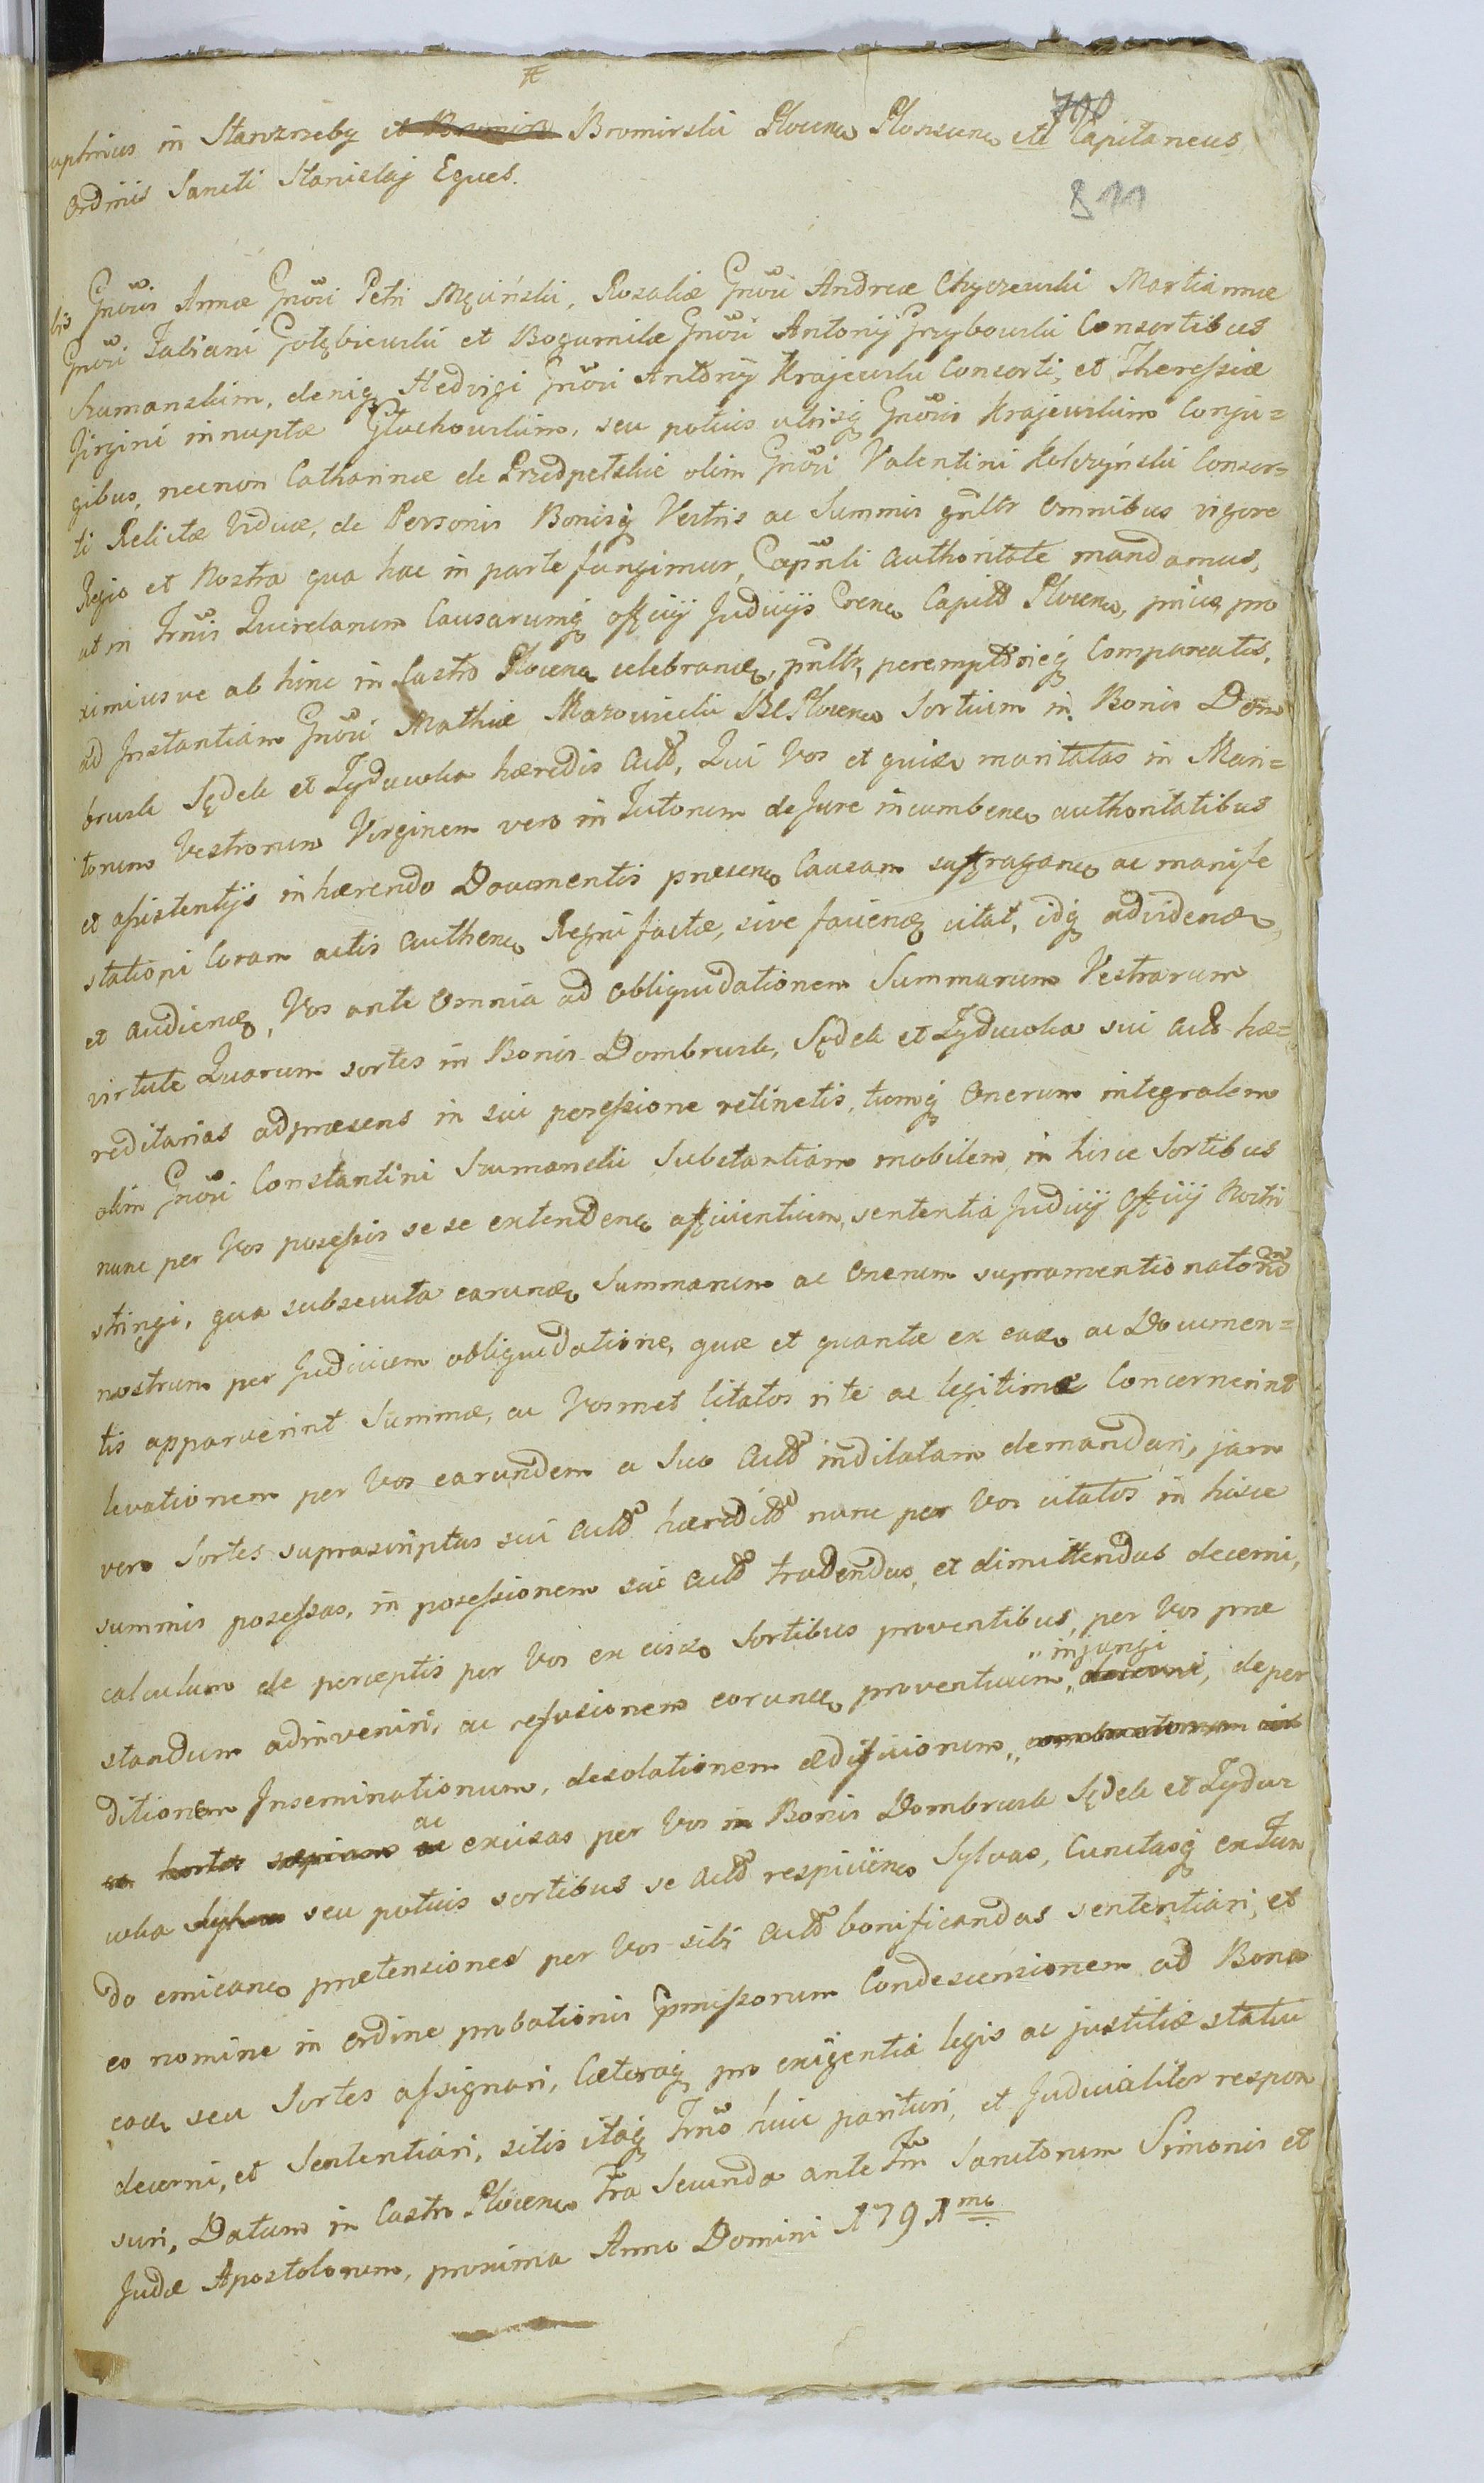 700
in Starozreby et Bromirz Bromirski Plocens Plonscens etc Capitaneus
Ordinis Sancti Stanislaj Eques.
811
Gnõsis Annæ Gnõsi Petri Męciński, Rosaliæ Gnõsi Andreæ Chyczewski Martiannæ
Gnõsi Fabiani Gołębiewski et Bogumilæ Gnõsi Antonij Grzybowski Consortibus
Szumanskim, deniq Hedvigi Gnõsi Antonij Krajewski Consorti, et Theressiæ
Virgini innuptæ Głuchowskim, seu potius utrisq Gnõsis Krajewskim Conju=
gibus, necnon Catharinæ de Przedpełskie olim Gnõsi Valentini Kołczyński Consor=
ti Relictæ Viduæ, de Personis Bonisq Vestris ac Summis gnltr omnibus vigore
Regio et Nostra qua hac in parte fungimur, Capnli authoritate mandamus,
ut in Trnis Querelarum Causarumq officij Judicijs Crens Capitl Plocens, prius pro
ximiusve ab hinc in Castro Plocens celebrand, pnltr, peremptorieq Compareatis,
ad Instantiam Gnõsi Mathiæ Mazowiecki BL Plocens Sortium in Bonis Dom
brusk Sędek et Zyduwka hæredis Actl, Qui Vos et quid maritatas in Mari=
torum Vestrorum Virginem vero in Tutorum de Jure incumbens authoritatibus
et assistentijs inhærendo Documentis præsens Causam suffragans ac manife
stationi Coram actis authens Regni factæ, sive faciend citat, idq advidend,
et audiend, Vos ante omnia ad obliquidationem Summarum Vestrarum
virtute Quarum sortes in Bonis Dombrusk, Sędek et Zyduwka sui Actl hæ=
reditarias adpræsens in sui posessione retinetis, tumq Onerum integralem
olim Gnõsi Constantini Szumanski Substantiam mobilem in hisce Sortibus
nunc per Vos posessis sese extendens afficientium, sententia Judicij Officij Nostri
stringi, qua subsecuta earund Summarum ac Onerum supramentionatorum
nostrum per Judicium obliquidatione, quæ et quantæ ex eisd ac Documen=
tis apparuerint Summæ, ac Vosmet Citatos rite ac legitime Concernerint
levationem per Vos earundem a Suo Actl indilatam demandari, jam
vero Sortes suprascriptas sui Actl hæreditl nunc per Vos citatos in hisce
summis posessas, in posessionem sui Actl tradendas, et dimittendas decerni,
calculum de perceptis per Vos ex eisd Sortibus proventibus, per Vos præ
standum adinveniri, ac refusionem eorund proventuum, decerni, deper
injungi
ditionem Inseminationum, desolationem ædificiorum,
ac hortos sæpium ac excisas per Vos in Bonis Dombrusk Sędek et Zydu
ac
wka seu potius sortibus se Actl respiciens Sylvas, Cunctasq extun
do emicans prætensiones per Vos sibi Actl bonificandas sententiari, et
eo nomine in ordine probationis Præmissorum Condescensionem ad Bona
ead seu Sortes assignari, Cæteraq pro exigentia legis ac justitiæ statui
decerni, et Sententiari, sitis itaq Trno huic parituri, et Judicialiter respon
suri, Datum in Castro Plocens Fra Secunda ante Fm Sanctorum Simonis et
Judæ Apostolorum, proxima Anno Domini 1791mo